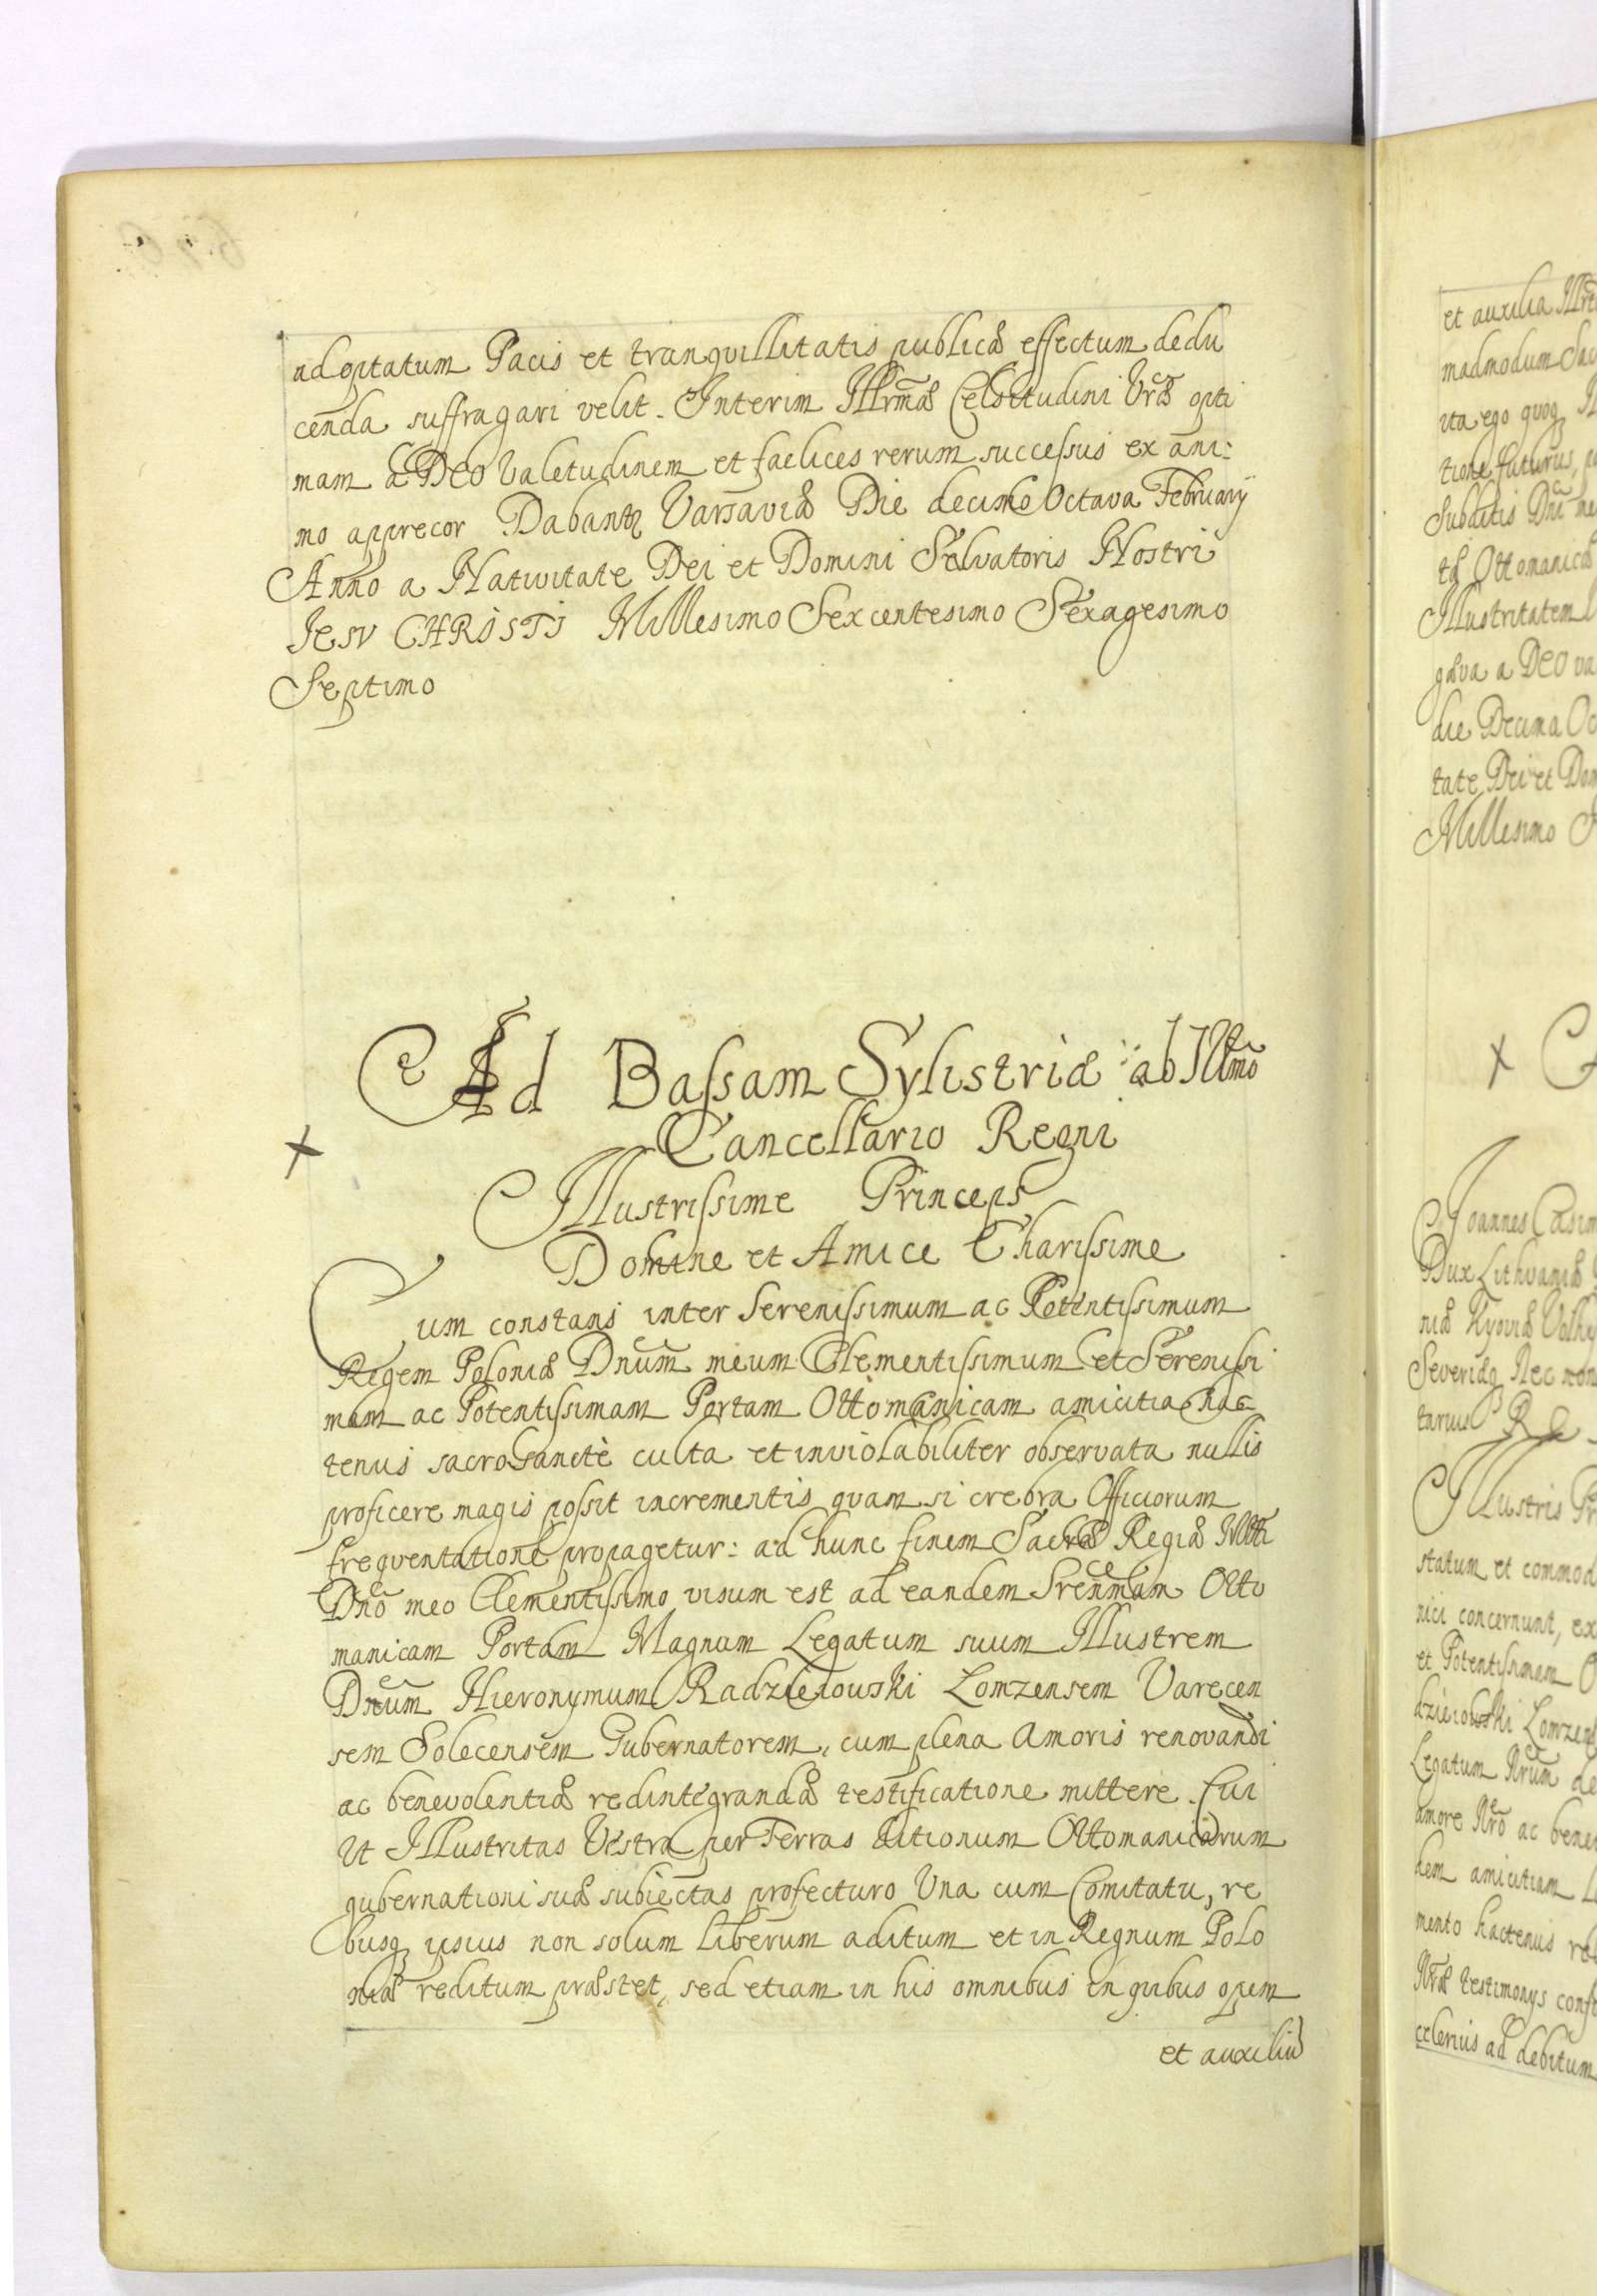 adoptatum Pacis et tranquillitatis publicæ effectum dedu
cenda suffragari velit. Interim Illrmæ Celsitudini Vræ opti
mam a DEO valetudinem et faelices rerum successus ex ani:
mo apprecor Dabantꝗ Varsaviæ Die decimo Octava February
Anno a Nativitate Dei et Domini Salvatoris Nostri
Jesu CHRISTI Millesimo Sexcentesimo Sexagesimo
Septimo
Ad Bassam Sylistriæ ab Illmo
Cancellario Regni
Illustrissime Princeps
Domine et Amice Charissime
Cum constans inter Serenissimum ac Potentissimum
Regem Poloniæ Dnum meum Clementissimum et Serenissi
mam ac Potentissimam Portam Ottomanicam amicitia hac
tenus sacrosanctè culta et inviolabiliter observata nullis
proficere magis possit incrementis quam si crebra Officiorum
frequentatione propagetur: ad hunc finem Sacræ Regiæ Mtti
Dno meo Clementissimo visum est ad eandem Srenmam Otto
manicam Portam Magnum Legatum suum Illustrem
Dnum Hieronymum Radzieiowski Lomzensem Varecen
sem Solecensem Gubernatorem, cum plena Amoris renovandi
ac benevolentiæ redintegrandæ testificatione mittere. Cui
Ut Illustritas Vestra per Terras ditionum Ottomanicarum
gubernationi suæ subiectas profecturo Una cum Comitatu, re
busq ipsius non solum liberum aditum et in Regnum Polo
niæ reditum præstet, sed etiam in his omnibus in quibus opem
et auxiliu
et auxilia
madmodum
ita ego quoq
tione futurus,
Subditis Dni
tæ Ottomanicæ
Illustritatem
a DEO va
die Decima Oc
tate Dei et Dom
Millesimo
Joannes Casim
Dux Lithuaniæ
niæ Kyoviæ Volhy
Severiæq Nec non
Illustris Pr
statum et commod
nici concernunt, ex
et Potentissimam O
dzieiowski Lomzens
Legatum Nrum de
amore Nro ac bene
dem amicitiam
mento hactenus
Nræ testimonys conf
celerius ad debitum